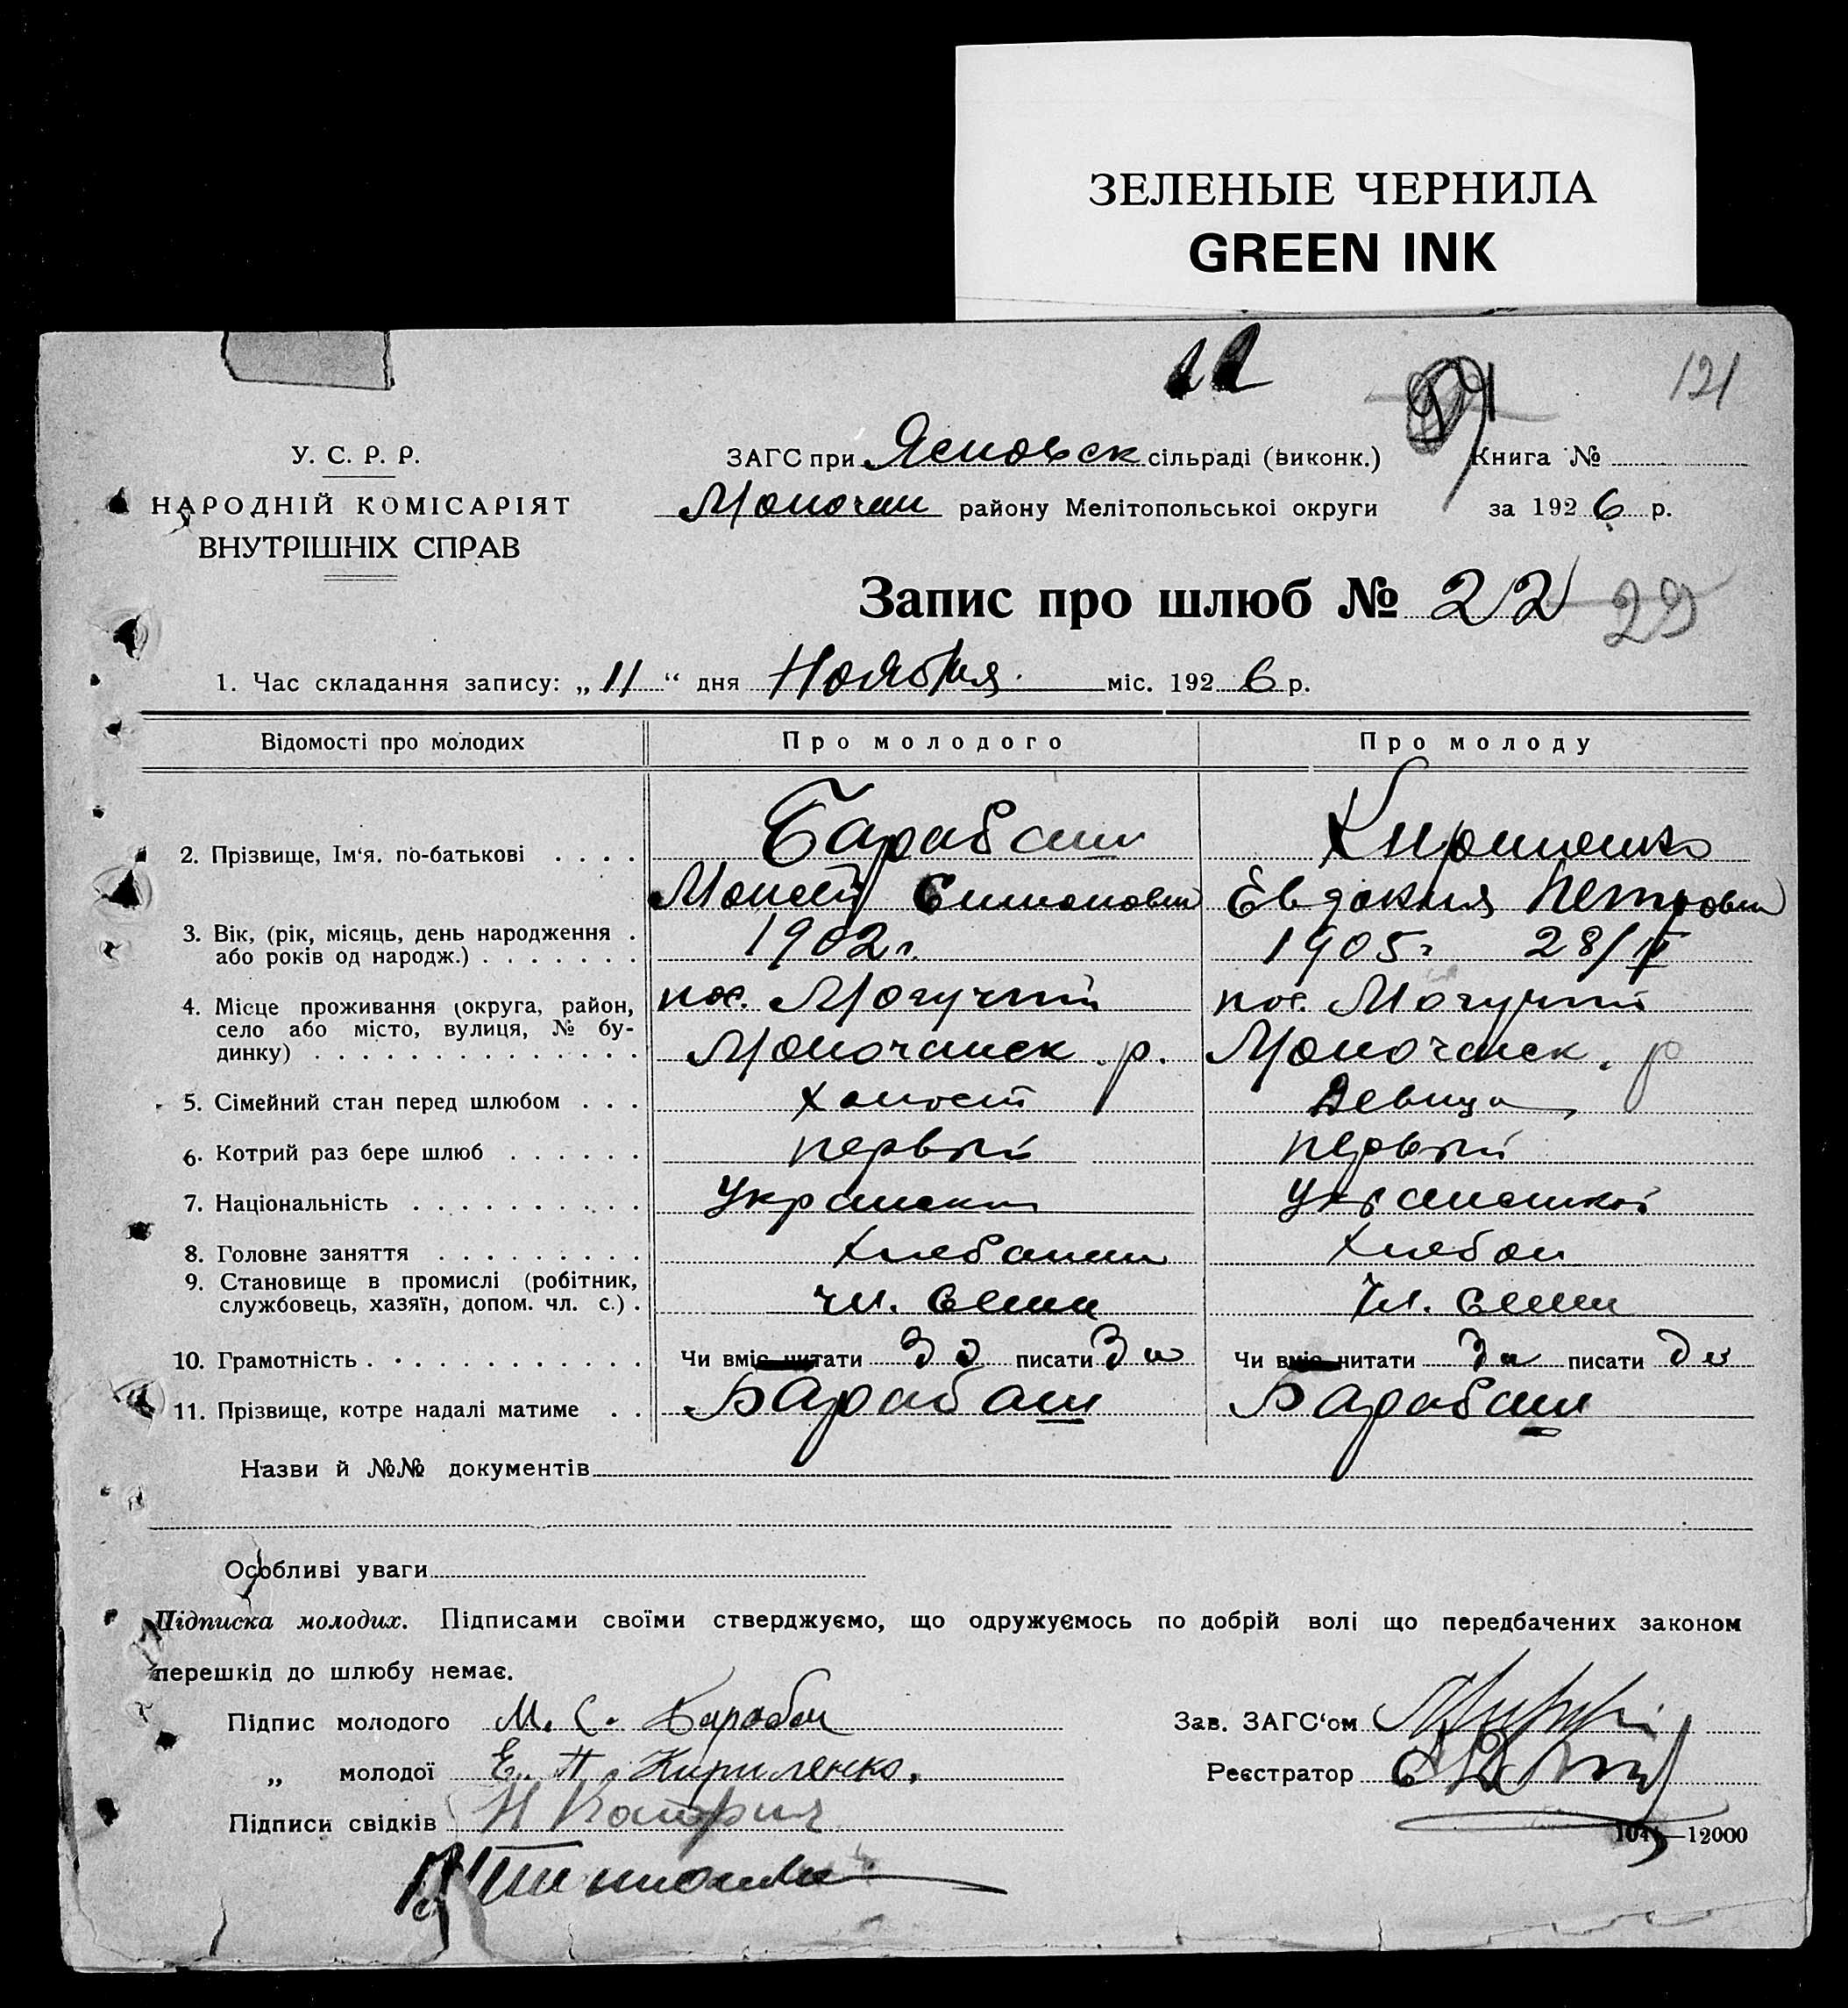 ЗЕЛЕНЫЕ ЧЕРНИЛА
GREEN INK
121
У. С. Р. Р.
НАРОДНІЙ КОМІСАРІЯТ
ВНУТРІШНІХ СПРАВ
ЗАГС при Ясновск сільраді (виконк.) Книга №
Молочан району Мелітопольської округи за 1926 р.
Запис про шлюб № 22 29
1. Час складання запису: „11“ дня Ноября міс. 1926 р.
Відомості про молодих Про молодого Про молоду
2. Прізвище, Ім‘я, по-батькові . . . . Барабаш Кириленко
Моисей Симонович Евдокия Петровн
3. Вік, (рік, місяць, день народження . або років од народж.) . . . . . . . 1902 г. 1905 г 28/
4. Місце проживання (округа, район, пос. Могучий пос. Могучий
село або місто, вулиця, № бу-
динку) . . . . . . . . . . . . . . Молочанск. р. Молочанск. р
5. Сімейний стан перед шлюбом . . . Холост Девица
6. Котрий раз бере шлюб . . . . . . первый первый
7. Національність . . . . . . . . . .
8. Головне заняття . . . . . . . . .
9. Становище в промислі (робітник,
службовець, хазяїн, допом. чл. с.) . чл. семи чл. семи
10. Грамотність . . . . . . . . . . . . Чи вміє читати да писати да Чи вміє читати да писати да
11. Прізвище, котре надалі матиме . . Барабаш Барабаш
Назви й №№ документів
Особливі уваги
Підписка молодих. Підписами своїми стверджуємо, що одружуємось по добрій волі що передбачених законом
перешкід до шлюбу немає.
Підпис молодого М. С. Барабаш Зав. ЗАГС‘ом
„ молодої Е. П. Кириленко. Реєстратор
Підписи свідків Н
—12000